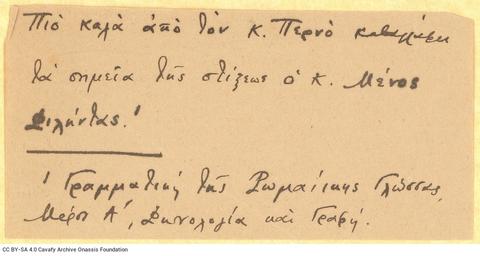 Πιὸ καλὰ ἀπὸ τὸν κ. Περνὸ
τὰ σημεῖα τῆς στίξεως ὁ κ. Μένος
Φιλήντας.¹
¹ Γραμματικὴ τῆς Ρωμαίικης Γλώσσας,
Μέρος Α', Φωνολογία καὶ Γραφή.
CC BY-SA 4.0 Cavafy Archive Onassis Foundation